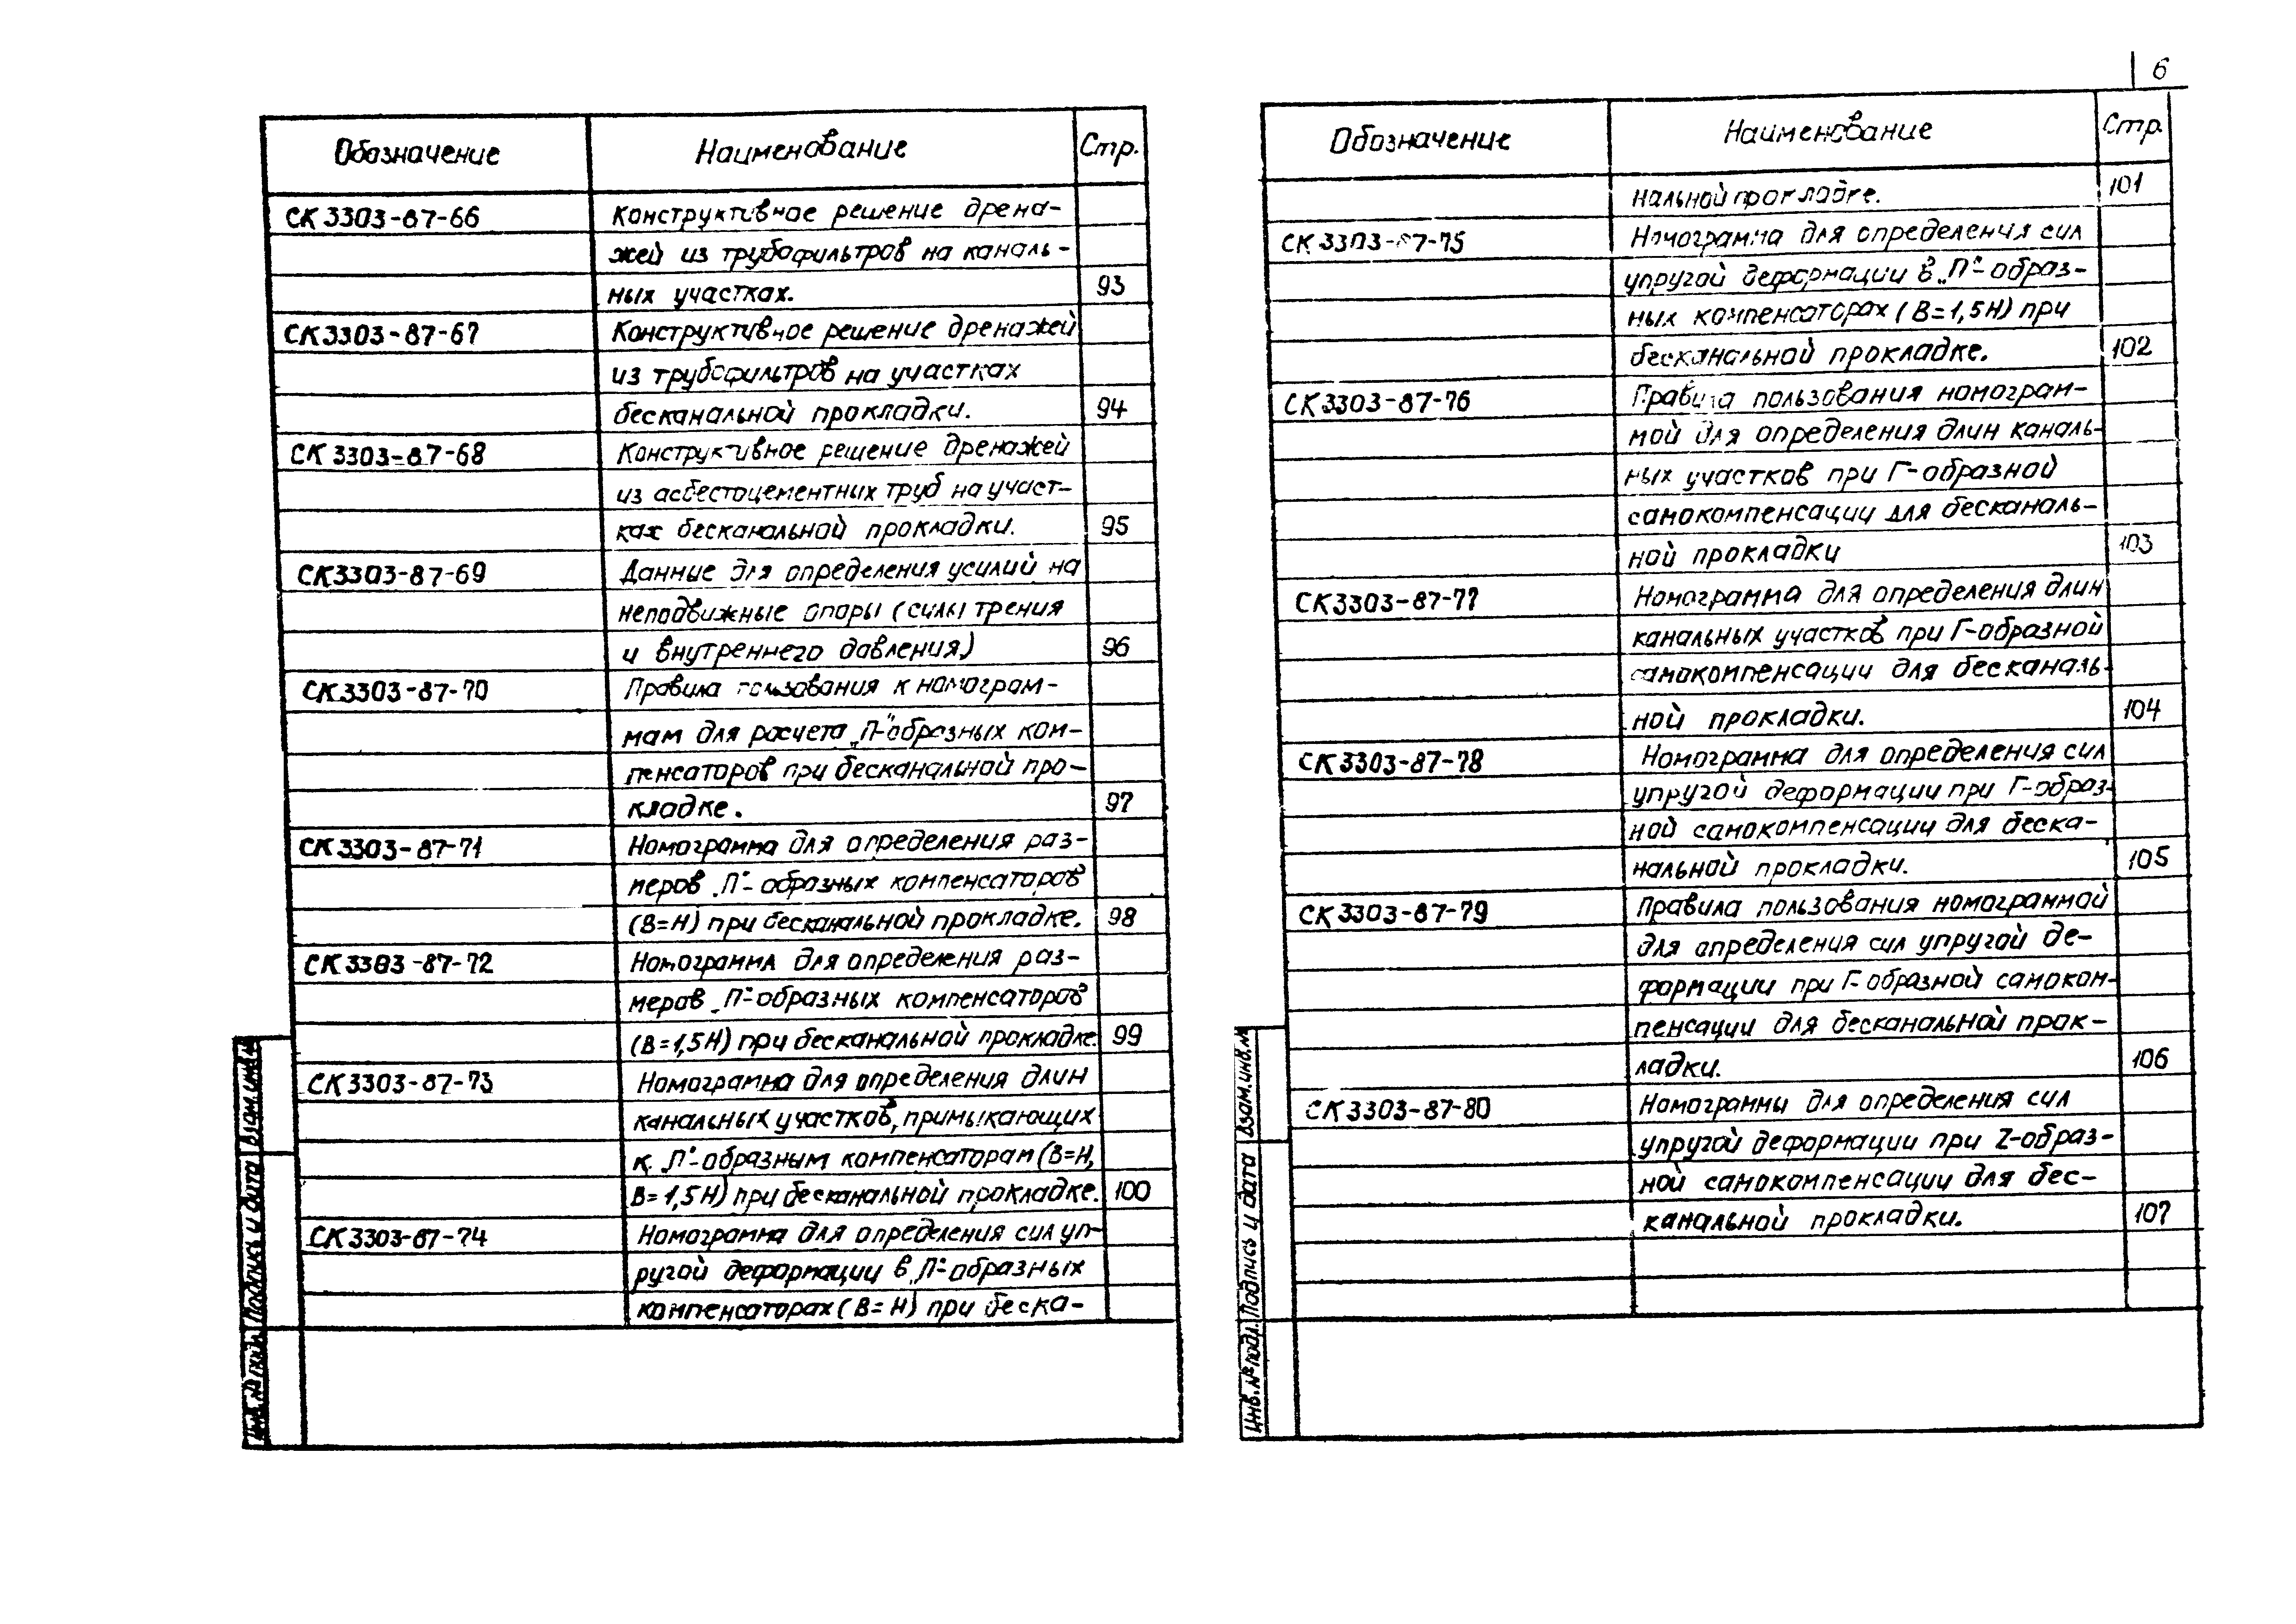 6
Обозначение Наименование Стр.
СК 3303-87-66 Конструктивное решение дрена-
жей из трубофильтров на каналь-
ных участках. 93
СК 3303-87-67 Конструктивное решение дренажей
из трубофильтров на участках
бесканальной прокладки. 94
СК 3303-87-68 Конструктивное решение дренажей
из асбестоцементных труб на участ-
ках бесканальной прокладки. 95
СК 3303-87-69 Данные для определения усилий на
неподвижные опоры (силы трения
и внутреннего давления) 96
СК 3303-87-70 Правила пользования к номограм-
мам для расчета „П"-образных ком-
пенсаторов при бесканальной про-
кладке. 97
СК 3303-87-71 Номограмма для определения раз-
меров „П"-образных компенсаторов
(В=Н) при бесканальной прокладке. 98
СК 3303-87-72 Номограмма для определения раз-
меров „П"-образных компенсаторов
(В=1,5Н) при бесканальной прокладке. 99
СК 3303-87-73 Номограмма для определения длин
канальных участков, примыкающих
к „П"-образным компенсаторам (В=Н,
В=1,5Н) при бесканальной прокладке. 100
СК 3303-87-74 Номограмма для определения сил уп-
ругой деформации в „П"-образных
компенсаторах (В=Н) при беска-
Инв. № подл. Подпись и дата Взам. инв. №
Обозначение Наименование Стр.
нальной прокладке. 101
СК 3303-87-75 Номограмма для определения сил
упругой деформации в „П"-образ-
ных компенсаторах (В=1,5Н) при
бесканальной прокладке. 102
СК 3303-87-76 Правила пользования номограм-
мой для определения длин каналь-
ных участков при Г-образной
самокомпенсации для бесканаль-
ной прокладки 103
СК 3303-87-77 Номограмма для определения длин
канальных участков при Г-образной
самокомпенсации для бесканаль-
ной прокладки. 104
СК 3303-87-78 Номограмма для определения сил
упругой деформации при Г-образ-
ной самокомпенсации для беска-
нальной прокладки. 105
СК 3303-87-79 Правила пользования номограммой
для определения сил упругой де-
формации при Г-образной самоком-
пенсации для бесканальной прок-
ладки. 106
СК 3303-87-80 Номограммы для определения сил
упругой деформации при Z-образ-
ной самокомпенсации для бес-
канальной прокладки. 107
Инв. № подл. Подпись и дата Взам. инв. №